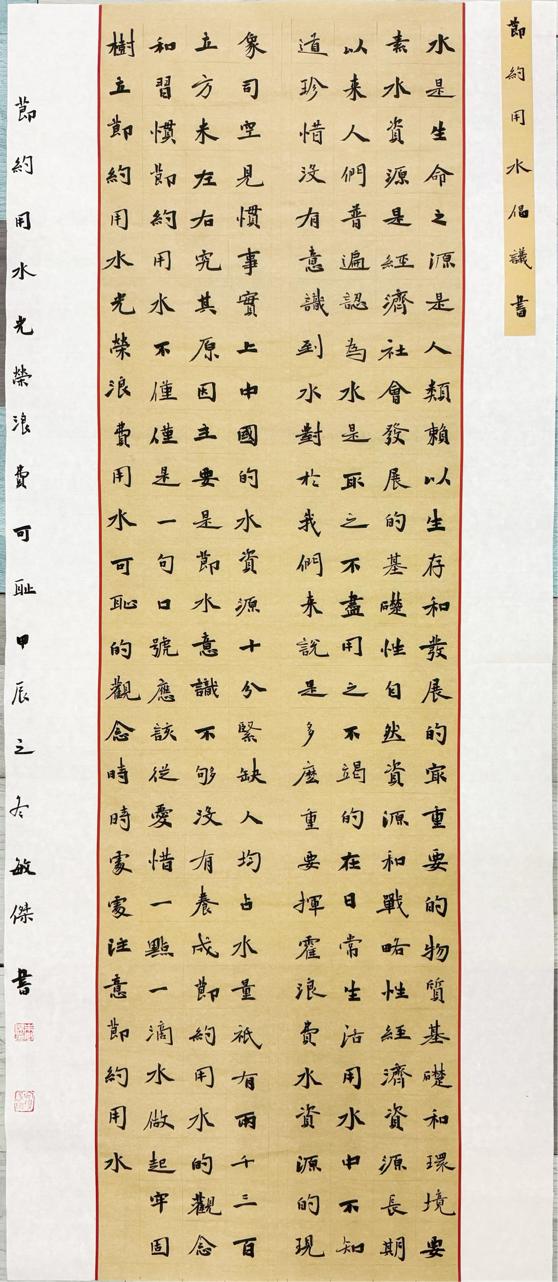 節約用水倡議書
水是生命之源是人類賴以生存和發展的最重要的物質基礎和環境要
素水資源是經濟社會發展的基礎性自然資源和戰略性經濟資源長期
以來人們普遍認為水是取之不盡用之不竭的在日常生活用水中不知
道珍惜沒有意識到水對於我們來說是多麼重要揮霍浪費水資源的現
象司空見慣事實上中國的水資源十分緊缺人均占水量衹有兩千三百
立方米左右究其原因主要是節水意識不夠沒有養成節約用水的觀念
和習慣節約用水不僅僅是一句口號應該從愛惜一點一滴水做起牢固
樹立節約用水光榮浪費用水可恥的觀念時時處處注意節約用水
節約用水光榮浪費可耻甲辰之冬敏傑書